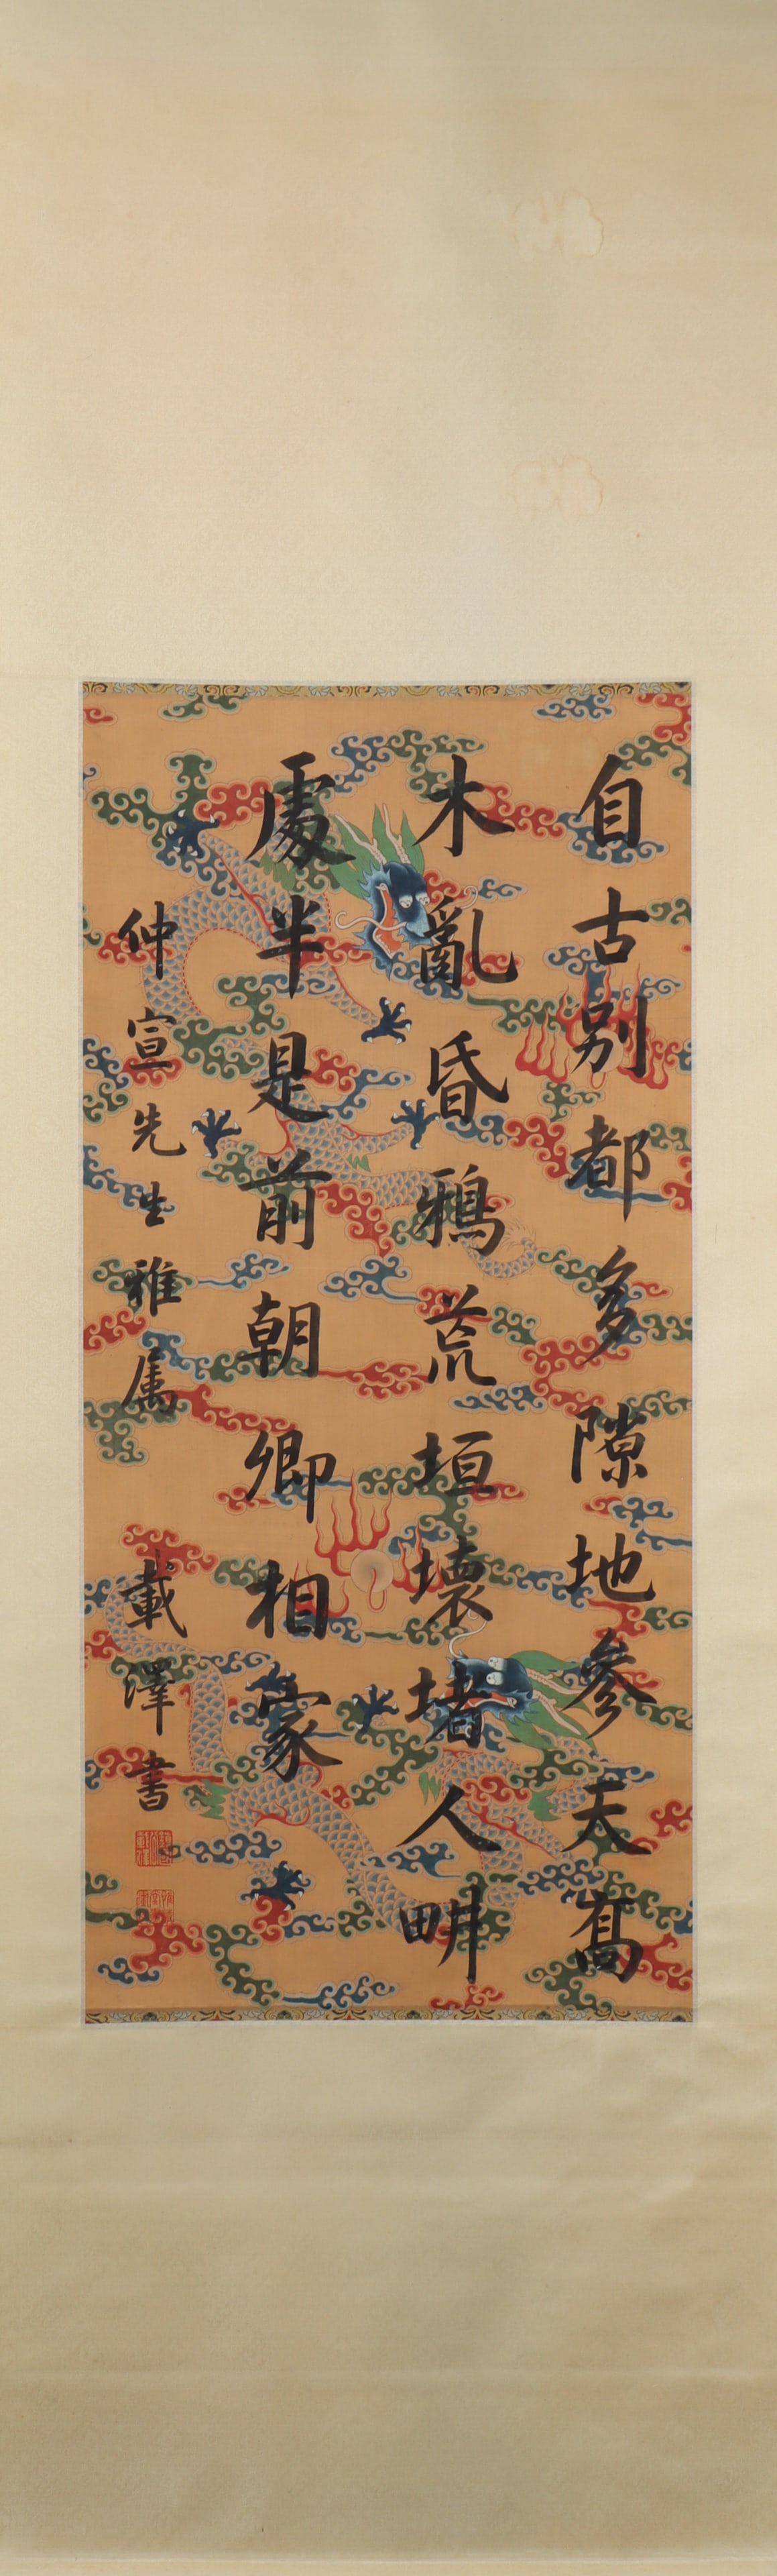 自古別都多隙地參天高
木亂昏鴉荒垣壞堵人畊
處半是前朝卿相家
仲宣先生雅属
載澤書